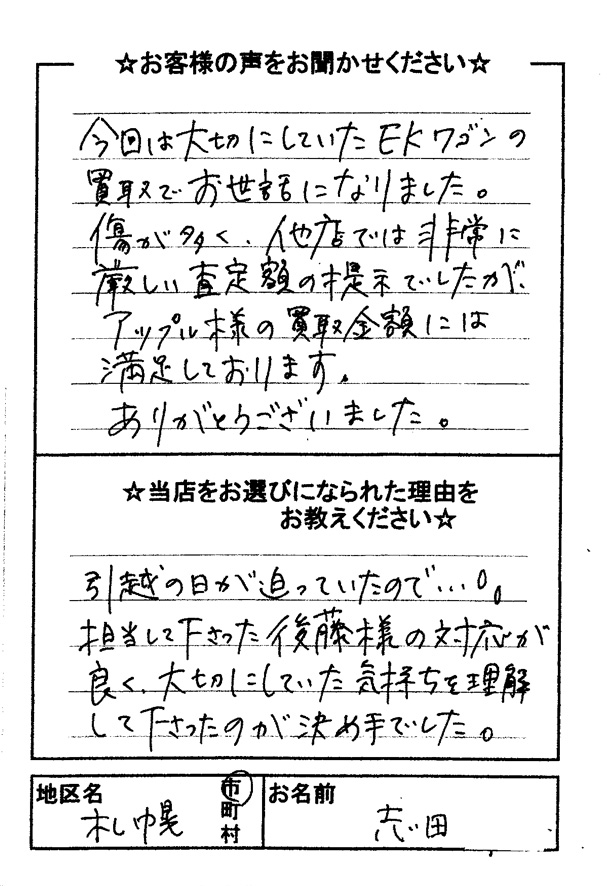 ☆お客様の声をお聞かせください☆
今回は大切にしていたEKワゴンの
買取でお世話になりました。
傷が多く、他店では非常に
厳しい査定額の提示でしたが、
アップル様の買取金額には
満足しております。
ありがとうございました。
☆当店をお選びになられた理由を
お教えください☆
引越の日が迫っていたので…。
担当して下さった後藤様の対応が
良く、大切にしていた気持ちを理解
して下さったのが決め手でした。
地区名 札幌 市町村
お名前 志田